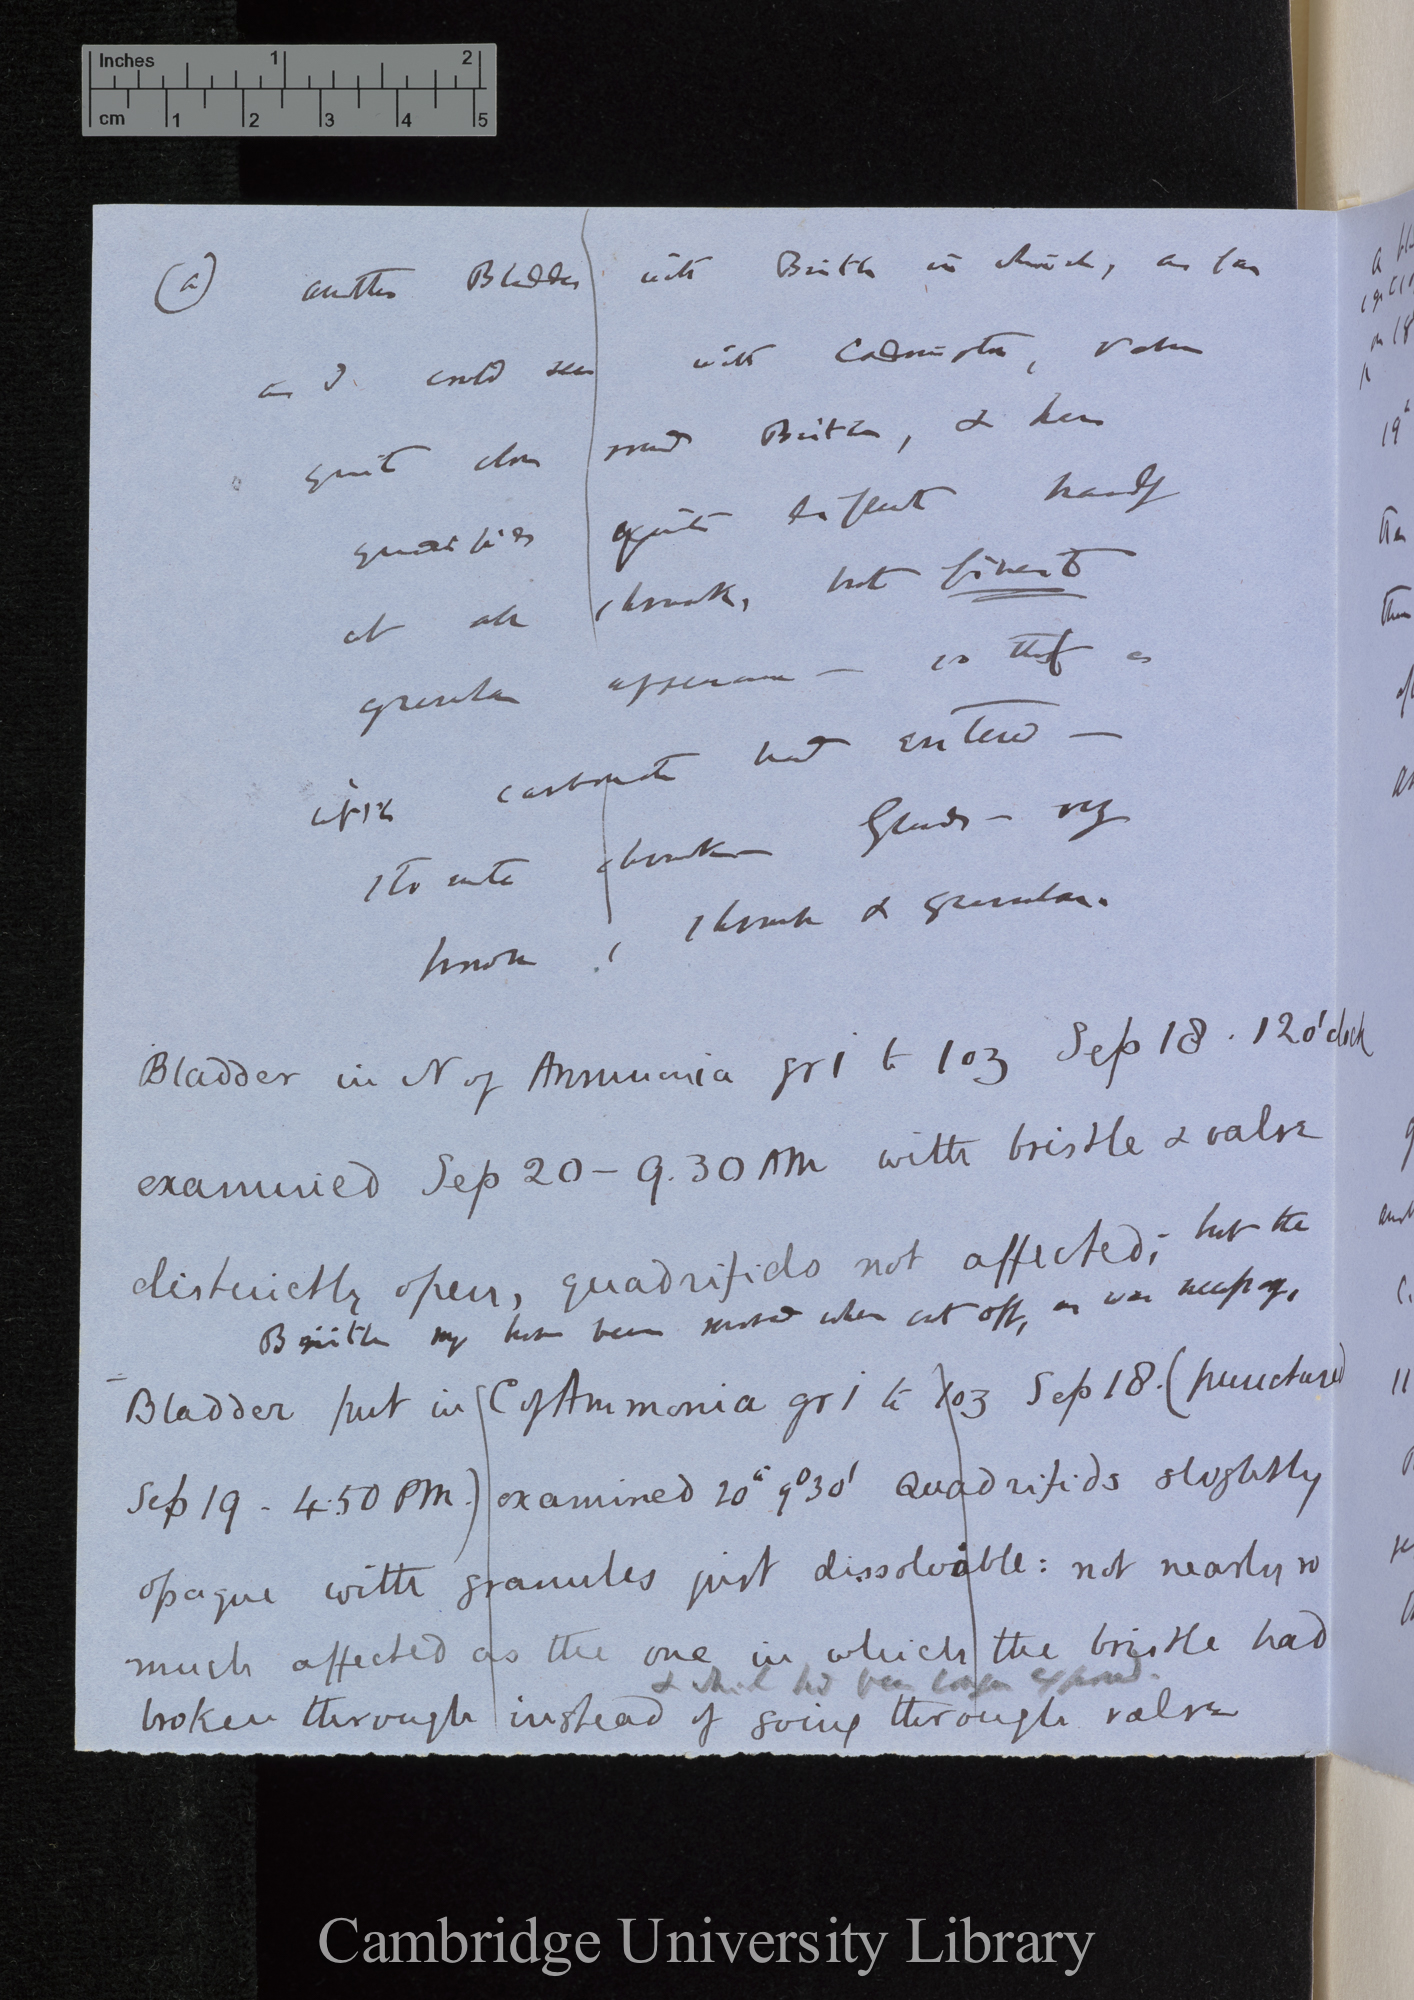 Inches 1 2
cm 1 2 3 4 5
(a) another Bladder with Bristle in which, as far
as I could see with Cadmister, valve
quite close round Bristle, & here
quadrifids quite distinct hardly
at all shrunk, but finest
granular appearance — so that a
carbonate had entered —
shrunken Glands — very
know shrunk & granular.
Bladder in N of Ammonia gr i to 1 oz Sep 18. 12 o'clock
examined Sep 20 — 9.30 AM with bristle & valve
distinctly open, quadrifids not affected; but the
Bristle may have been moved when cut off, as was necessary,
Bladder put in C of Ammonia gr i to 1 oz Sep 18. (punctured
Sep 19 - 4.50 PM.) examined 20th 9°30' Quadrifids slightly
opaque with granules just dissolvable: not nearly so
much affected as the one in which the bristle had
& which had been longer exposed.
broken through instead of going through valve
Cambridge University Library